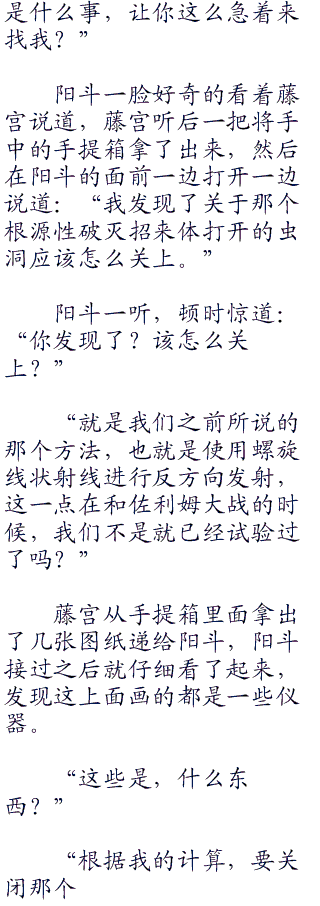 是什么事，让你这么急着来
找我？”
阳斗一脸好奇的看着藤
宫说道，藤宫听后一把将手
中的手提箱拿了出来，然后
在阳斗的面前一边打开一边
说道：“我发现了关于那个
根源性破灭招来体打开的虫
洞应该怎么关上。”
阳斗一听，顿时惊道：
“你发现了？该怎么关
上？”
“就是我们之前所说的
那个方法，也就是使用螺旋
线状射线进行反方向发射，
这一点在和佐利姆大战的时
候，我们不是就已经试验过
了吗？”
藤宫从手提箱里面拿出
了几张图纸递给阳斗，阳斗
接过之后就仔细看了起来，
发现这上面画的都是一些仪
器。
“这些是，什么东
西？”
“根据我的计算，要关
闭那个